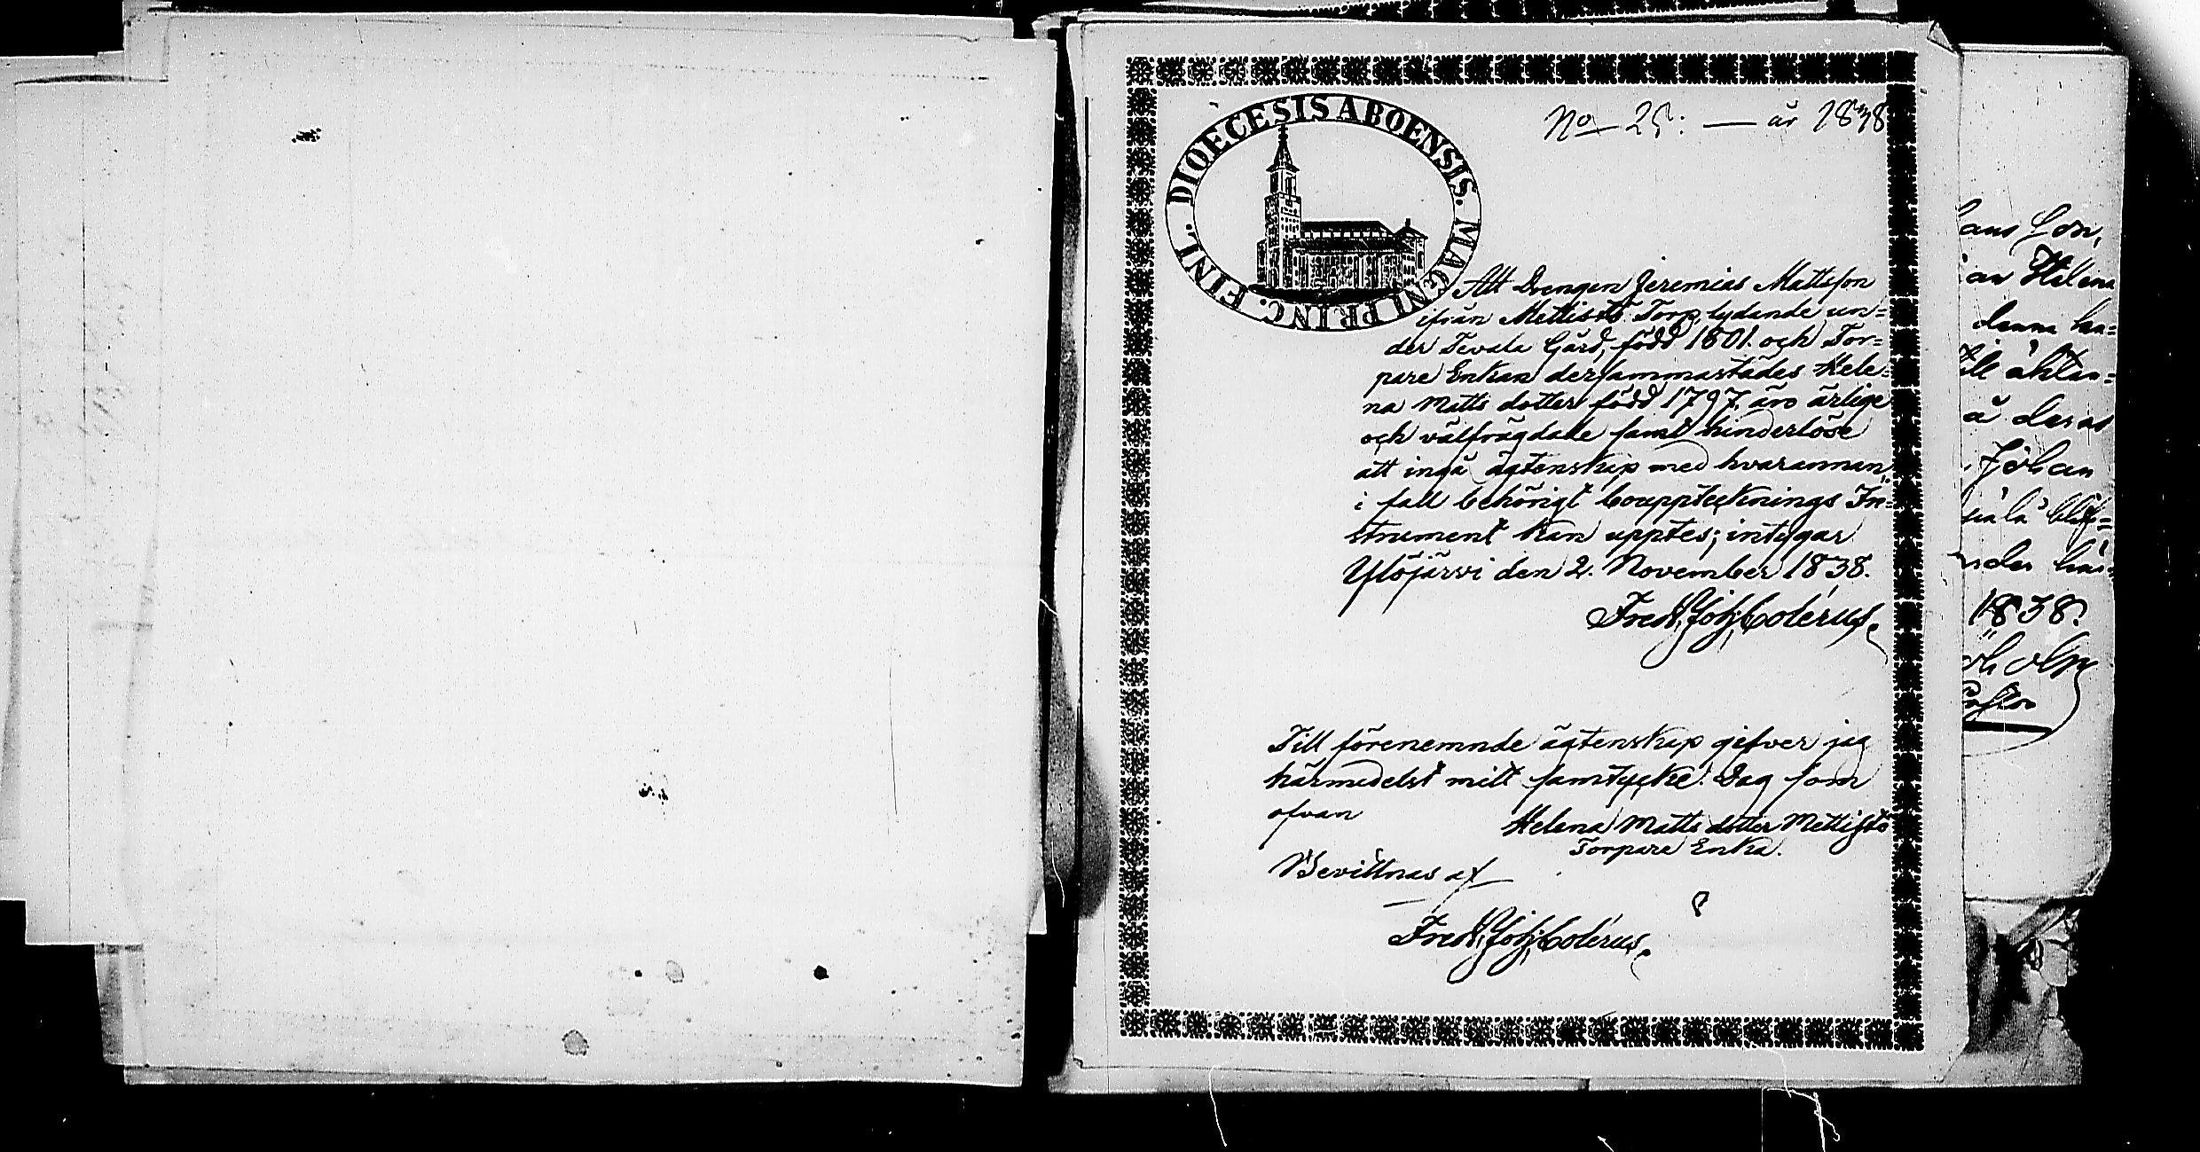 DIOECESIS ABOENSIS. MAGNI PRINC. FINL.
No 25: — år 1838
Att Drengen Jeremias Mattsson
ifrån Mettistö Torp, lydande un=
der Tevala Gård, född 1801. och Tor=
pare Enkan dersammastädes Hele=
na Matts dotter född 1797. äro ärlige
och välfrägdade samt hinderlöse
att ingå ägtenskip med hvarannan
i fall behörigt bouppteknings In=
strument kan upptes; intygar
Ylöjärvi den 2. November 1838.
Fredr. Joh. Colérus.
Till förenemnde ägtenskap gifver jag
härmedelst mitt samtycke. Dag som
ofvan
Helena Matts dotter Mettistö
Torpare Enka.
Bevittnas af
Fredr. Joh. Colérus.
Helena
denna
äktas=
å deras
Johan
1838.
Pastor